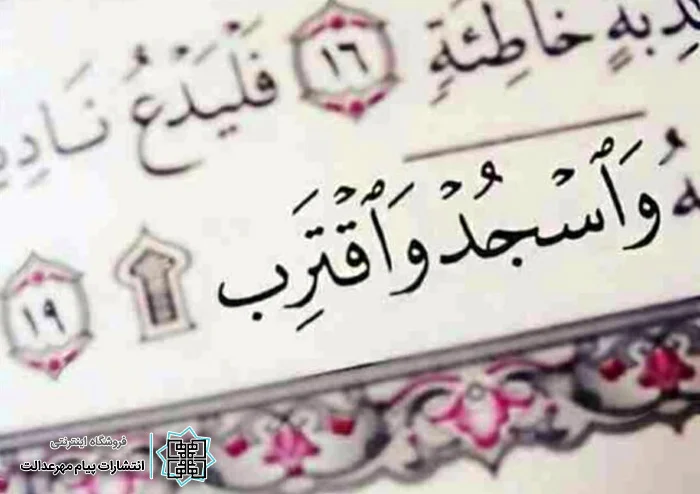 بَةٍ خَاطِئَةٍ ١٦ فَلْيَدْعُ نَادِ
هُ وَٱسْجُدْ وَٱقْتَرِب ۩ ١٩
فروشگاه اینترنتی
انتشارات پیام مهرعدالت